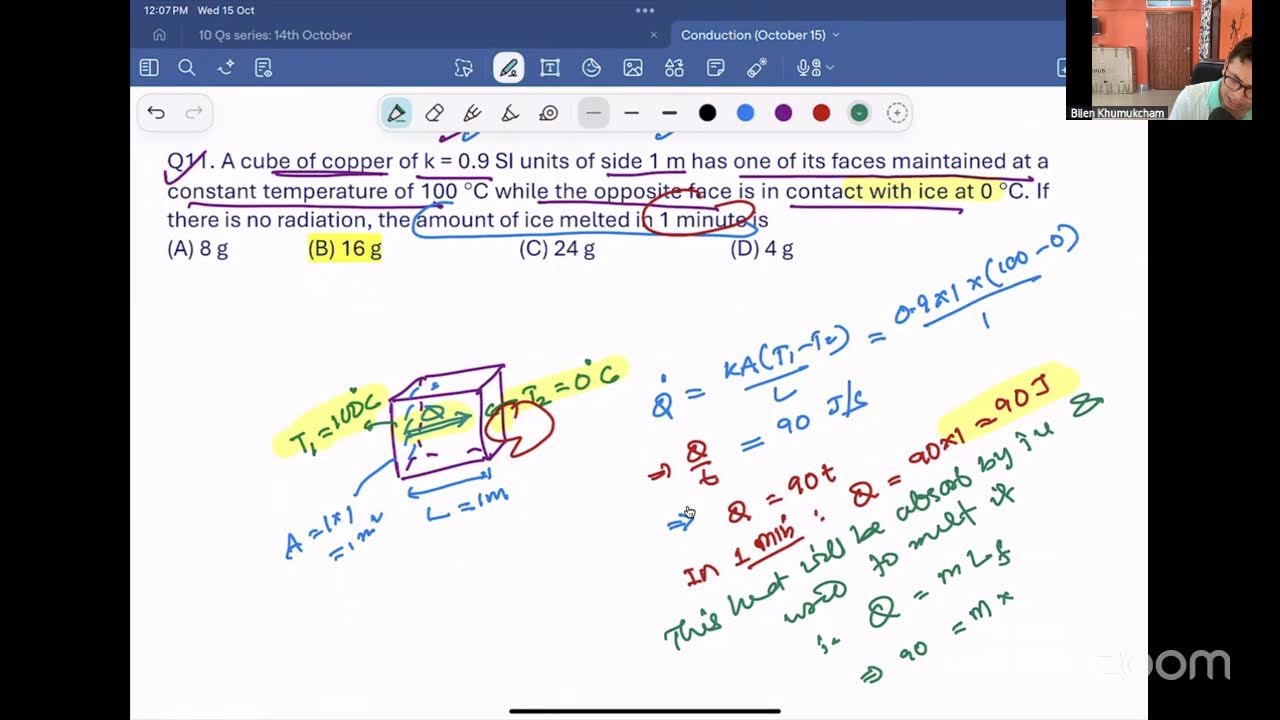 12:07 PM Wed 15 Oct
10 Qs series: 14th October
Conduction (October 15)
Q11. A cube of copper of k = 0.9 SI units of side 1 m has one of its faces maintained at a
constant temperature of 100 °C while the opposite face is in contact with ice at 0 °C. If
there is no radiation, the amount of ice melted in 1 minute is
(A) 8 g (B) 16 g (C) 24 g (D) 4 g
T₁ = 100°C
Q
T₂ = 0°C
L = 1m
A = 1×1
= 1 m²
Q̇ = KA(T₁-T₂)/L = 0.9×1×(100-0)/1
= 90 J/s
⇒ Q/t
⇒ Q = 90t
In 1 min : Q = 90×1 = 90J
This heat will be absorb by ice &
used to melt it
∴ Q = mLf
⇒ 90 = m×
Bijen Khumukcham
HUB
zoom